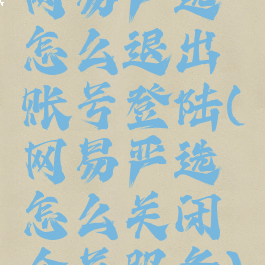 网易严选
怎么退出
账号登陆(
网易严选
怎么关闭